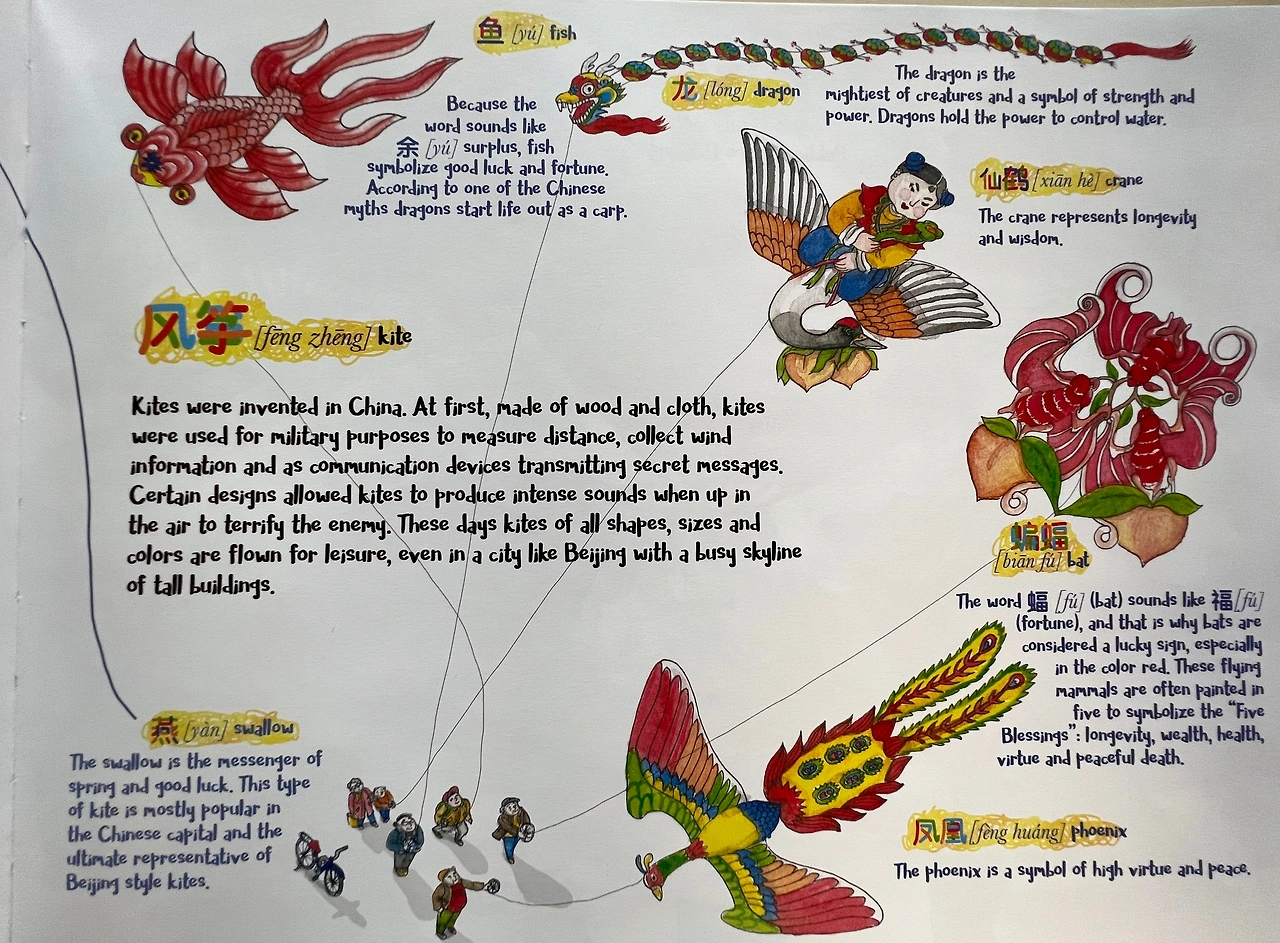 鱼 [yú] fish
Because the
word sounds like
余 [yú] surplus, fish
symbolize good luck and fortune.
According to one of the Chinese
myths dragons start life out as a carp.
龙 [lóng] dragon
The dragon is the
mightiest of creatures and a symbol of strength and
power. Dragons hold the power to control water.
仙鹤 [xiān hè] crane
The crane represents longevity
and wisdom.
风筝 [fēng zhēng] kite
Kites were invented in China. At first, made of wood and cloth, kites
were used for military purposes to measure distance, collect wind
information and as communication devices transmitting secret messages.
Certain designs allowed kites to produce intense sounds when up in
the air to terrify the enemy. These days kites of all shapes, sizes and
colors are flown for leisure, even in a city like Beijing with a busy skyline
of tall buildings.
蝙蝠
[biān fú] bat
The word 蝠 [fú] (bat) sounds like 福 [fú]
(fortune), and that is why bats are
considered a lucky sign, especially
in the color red. These flying
mammals are often painted in
five to symbolize the “Five
Blessings”: longevity, wealth, health,
virtue and peaceful death.
燕 [yàn] swallow
The swallow is the messenger of
spring and good luck. This type
of kite is mostly popular in
the Chinese capital and the
ultimate representative of
Beijing style kites.
凤凰 [fèng huáng] phoenix
The phoenix is a symbol of high virtue and peace.